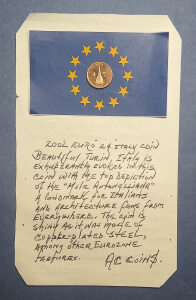 2002 EURO 2¢ ITALY COIN
BEAUTIFUL TURIN, ITALY IS
EXHUBERANTLY EVOKED IN THIS
COIN WITH THE TOP DEPICTION
OF THE "MOLE ANTONELLIANA"
A LANDMARK FOR ITALIANS
AND ARCHITECTURE FANS FROM
EVERYWHERE. THE COIN IS
SHINY AS IT WAS MADE OF
COPPER-PLATED STEEL,
AMONG OTHER EUROZONE
FEATURES. AC COINS